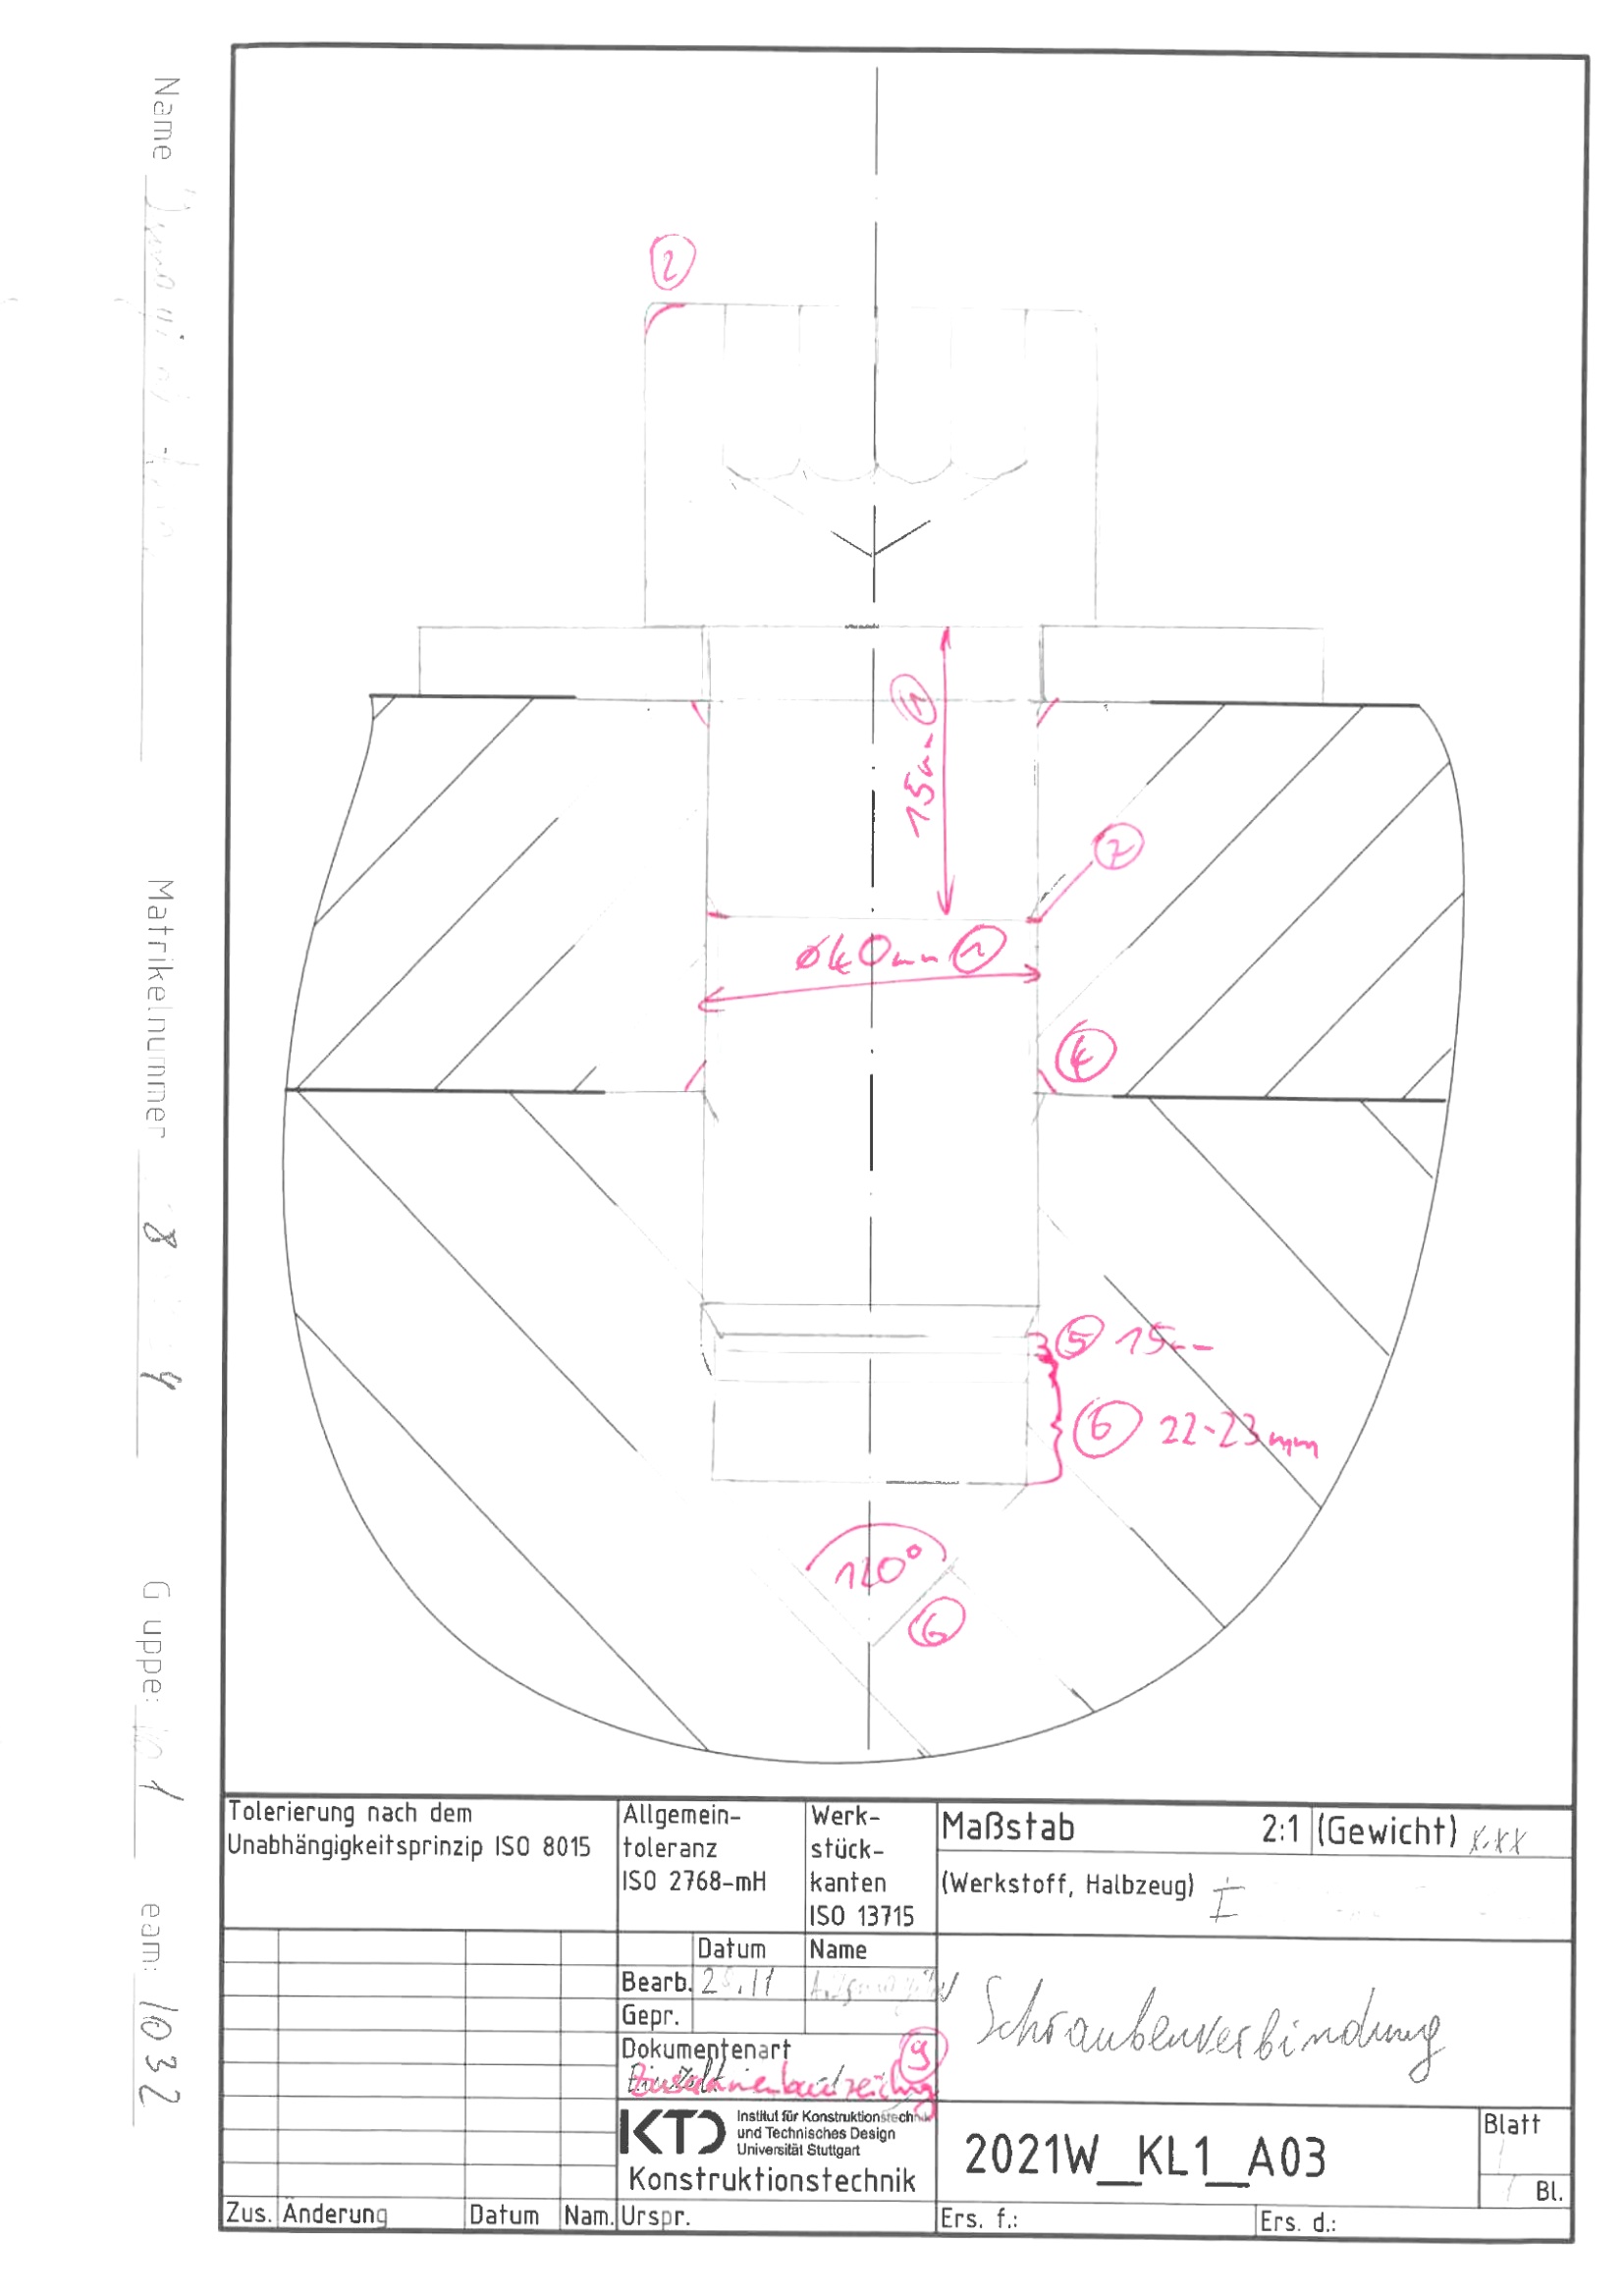 Name
Matrikelnummer 8 4
G uppe: 1
eam: 1032
2
1
15mm
7
ø40mm 1
4
5 15mm
6 22-23mm
120°
6
Tolerierung nach dem
Unabhängigkeitsprinzip ISO 8015
Allgemein-
toleranz
ISO 2768-mH
Werk-
stück-
kanten
ISO 13715
Maßstab 2:1
(Gewicht) x.xx
(Werkstoff, Halbzeug)
Datum Name
Bearb.
Gepr.
Dokumentenart
9
Schraubenverbindung
KTD
Institut für Konstruktionstechnik
und Technisches Design
Universität Stuttgart
Konstruktionstechnik
2021W_KL1_A03
Blatt
1
1 Bl.
Zus. Änderung Datum Nam. Urspr.
Ers. f.: Ers. d.: